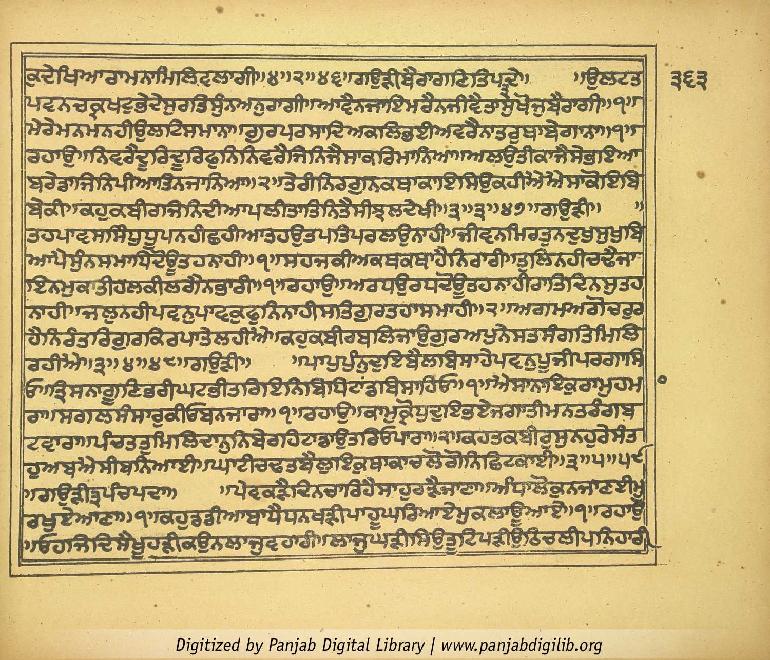 ਕਦੇਖਿਆਰਾਮਨਾਮਿਲਿਵਲਾਗੀ॥੪॥੨॥੪੬॥ਗਉੜੀਬੈਰਾਗਣਿਤਿਪਦੇ॥ ॥ਉਲਟਤ ੩੬੩
ਪਵਨਚਕ੍ਰਖਟੁਭੇਦੇਸੁਰਤਿਸੁੰਨਅਨੁਰਾਗੀ॥ਆਵੈਨਜਾਇਮਰੈਨਜੀਵੈਤਾਸੁਖੋਜੁਬੈਰਾਗੀ॥੧॥
ਮੇਰੇਮਨਮਨਹੀਉਲਟਿਸਮਾਨਾ॥ਗੁਰਪਰਸਾਦਿਅਕਲਿਭਈਅਵਰੈਨਾਤਰੁਥਾਬੇਗਾਨਾ॥੧॥
ਰਹਾਉ॥ਨਿਵਰੈਦੂਰਿਦੂਰਿਫੁਨਿਨਿਵਰੈਜਿਨਿਜੈਸਾਕਰਿਮਾਨਿਆ॥ਅਲਉਤੀਕਾਜੈਸੇਭਇਆ
ਬਰੇਡਾਜਿਨਿਪੀਆਤਿਨਜਾਨਿਆ॥੨॥ਤੇਰੀਨਿਰਗੁਨਕਥਾਕਾਇਸਿਉਕਹੀਐਐਸਾਕੋਇਬਿ
ਬੇਕੀ॥ਕਹੁਕਬੀਰਜਿਨਿਦੀਆਪਲੀਤਾਤਿਨਿਤੈਸੀਝਲਦੇਖੀ॥੩॥੩॥੪੭॥ਗਉੜੀ॥ ॥
ਤਹਪਾਵਸਸਿੰਧੁਧੂਪਨਹੀਛਹੀਆਤਹਉਤਪਤਿਪਰਲਉਨਾਹੀ॥ਜੀਵਨਮਿਰਤੁਨਦੁਖੁਸੁਖੁਬਿ
ਆਪੈਸੁੰਨਸਮਾਧਿਦੋਊਤਹਨਾਹੀ॥੧॥ਸਹਜਕੀਅਕਥਕਥਾਹੈਨਿਰਾਰੀ॥ਤੁਲਿਨਹੀਚਢੈਜਾ
ਇਨਮੁਕਾਤੀਹਲਕੀਲਗੈਨਭਾਰੀ॥੧॥ਰਹਾਉ॥ਅਰਧਉਰਧਦੋਊਤਹਨਾਹੀਰਾਤਿਦਿਨਸੁਤਹ
ਨਾਹੀ॥ਜਲੁਨਹੀਪਵਨੁਪਾਵਕੁਫੁਨਿਨਾਹੀਸਤਿਗੁਰਤਹਾਸਮਾਹੀ॥੨॥ਅਗਮਅਗੋਚਰੁਰ
ਹੈਨਿਰੰਤਰਿਗੁਰਕਿਰਪਾਤੇਲਹੀਐ॥ਕਹੁਕਬੀਰਬਲਿਜਾਉਗੁਰਅਪੁਨੇਸਤਸੰਗਤਿਮਿਲਿ
ਰਹੀਐ॥੩॥੪॥੪੮॥ਗਉੜੀ॥ ॥ਪਾਪੁਪੁੰਨੁਦੁਇਬੈਲਬਿਸਾਹੇਪਵਨੁਪੂਜੀਪਰਗਾਸਿ
ਓ॥ਤ੍ਰਿਸਨਾਗੂਣਿਭਰੀਘਟਭੀਤਰਿਇਨਿਬਿਧਿਟਾਂਡਬਿਸਾਹਿਓ॥੧॥ਐਸਾਨਾਇਕੁਰਾਮੁਹਮ
ਰਾ॥ਸਗਲਸੰਸਾਰੁਕੀਓਬਨਜਾਰਾ॥੧॥ਰਹਾਉ॥ਕਾਮੁਕ੍ਰੋਧੁਦੁਇਭਏਜਗਾਤੀਮਨਤਰੰਗਬ
ਟਵਾਰਾ॥ਪੰਚਤਤੁਮਿਲਿਦਾਨੁਨਿਬੇਰਹਿਟਾਡਾਉਤਰਿਓਪਾਰਾ॥੨॥ਕਹਤਕਬੀਰੁਸੁਨਹੁਰੇਸੰਤ
ਹੁਅਬਐਸੀਬਨਿਆਈ॥ਘਾਟੀਚਢਤਬੈਲੁਇਕੁਥਾਕਾਚਲੋਗੋਨਿਛਿਟਕਾਈ॥੩॥੫॥੪੯
॥ਗਉੜੀਤ੍ਰਪੰਚਪਦਾ॥ ॥ਪੇਵਕੜੈਦਿਨਚਾਰਿਹੈਸਾਹੁਰੜੈਜਾਣਾ॥ਅੰਧਾਲੋਕੁਨਜਾਣਈਮੂ
ਰਖੁਏਆਣਾ॥੧॥ਕਹੁਡਡੀਆਬਾਧੈਧਨਖੜੀਪਾਹੂਘਰਿਆਏਮੁਕਲਾਊਆਏ॥੧॥ਰਹਾਉ
॥ਓਹਜਿਦਿਸੈਖੂਹੜੀਕਉਨਲਾਜੁਵਹਾਰੀ॥ਲਾਜੁਘੜੀਸਿਉਤੂਟਿਪੜੀਉਠਿਚਲੀਪਨਿਹਾਰੀ
Digitized by Panjab Digital Library | www.panjabdigilib.org